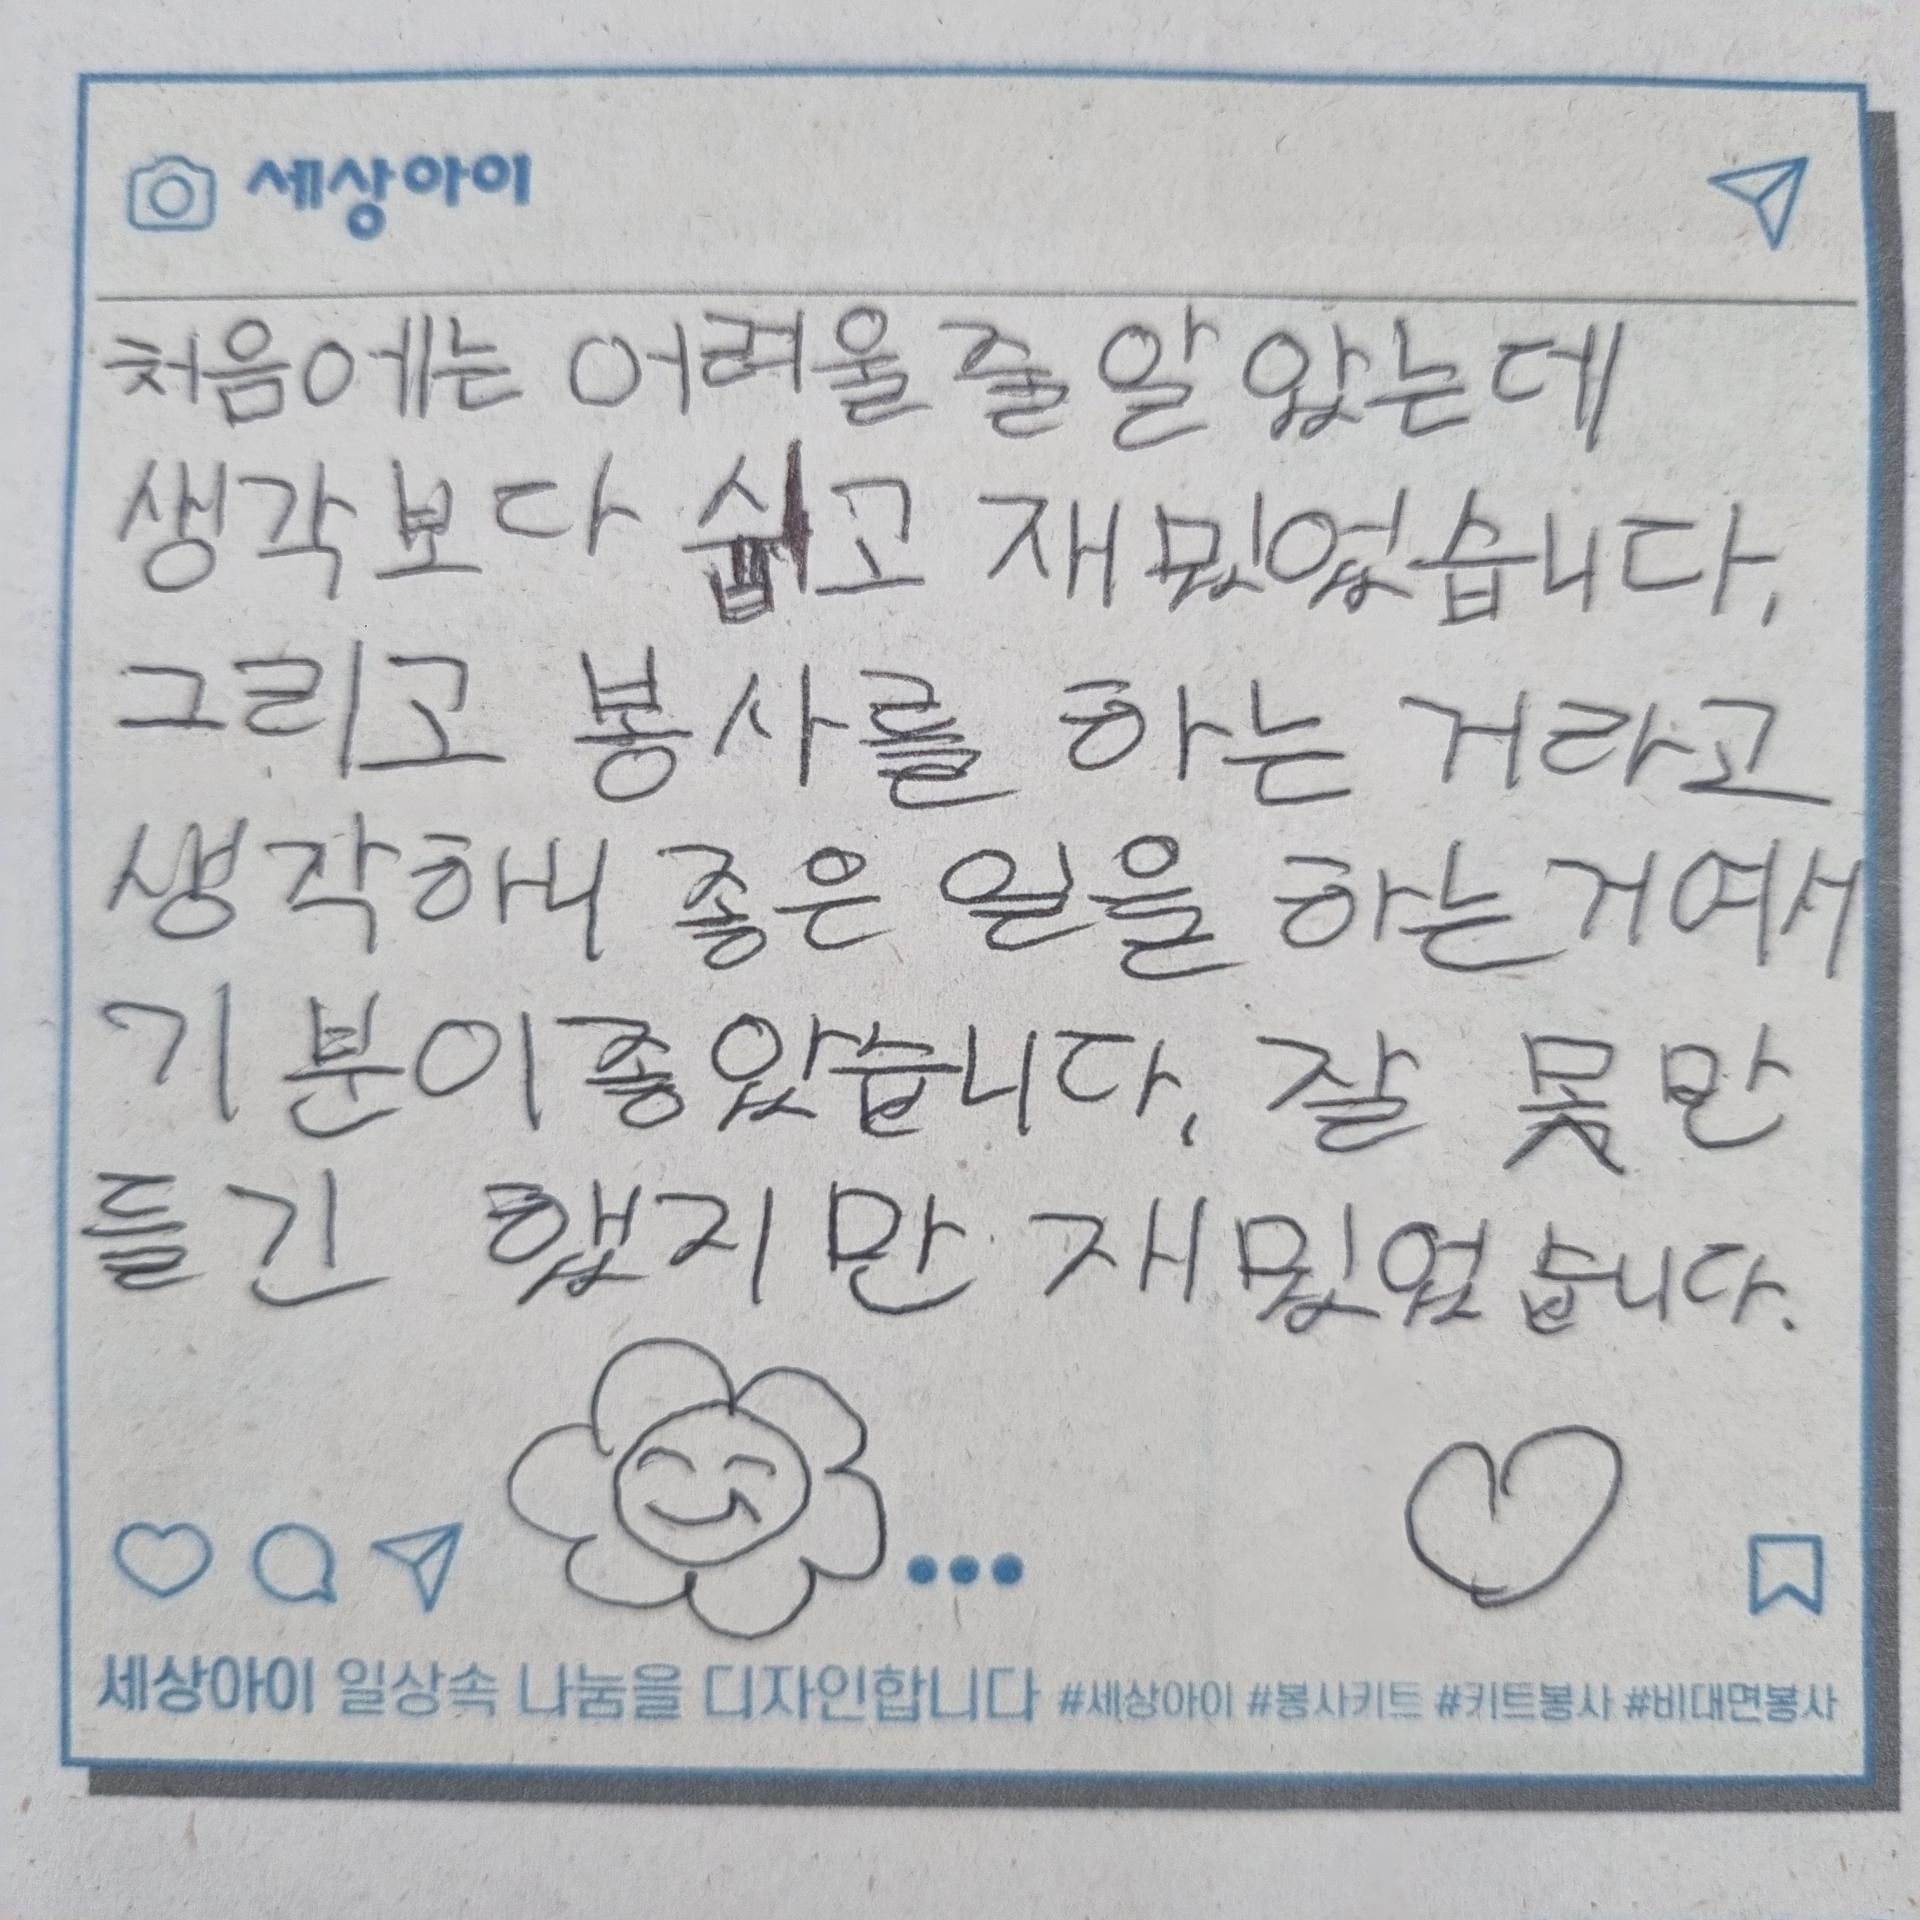 세상아이
처음에는 어려울줄 알았는데
생각보다 쉽고 재밌었습니다,
그리고 봉사를 하는 거라고
생각하니 좋은 일을 하는거여서
기분이좋았습니다, 잘 못만
들긴 했지만 재밌었습니다.
세상아이 일상속 나눔을 디자인합니다 #세상아이 #봉사키트 #키트봉사 #비대면봉사